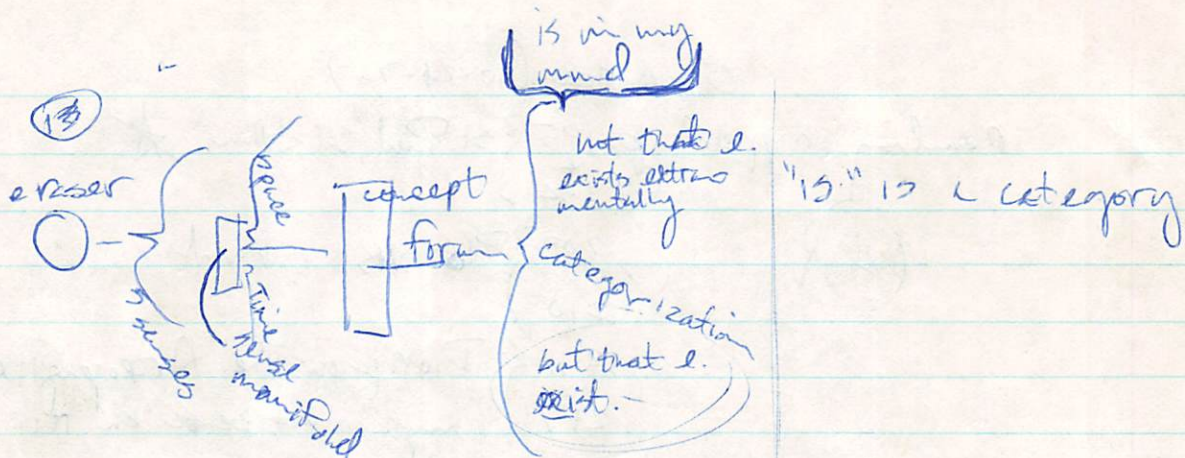 is in my
mind
eraser
5 senses
space
Time
sense
manifold
concept
form
not that e.
exists extra
mentally
categorization
but that e.
exist.-
"is" is a category